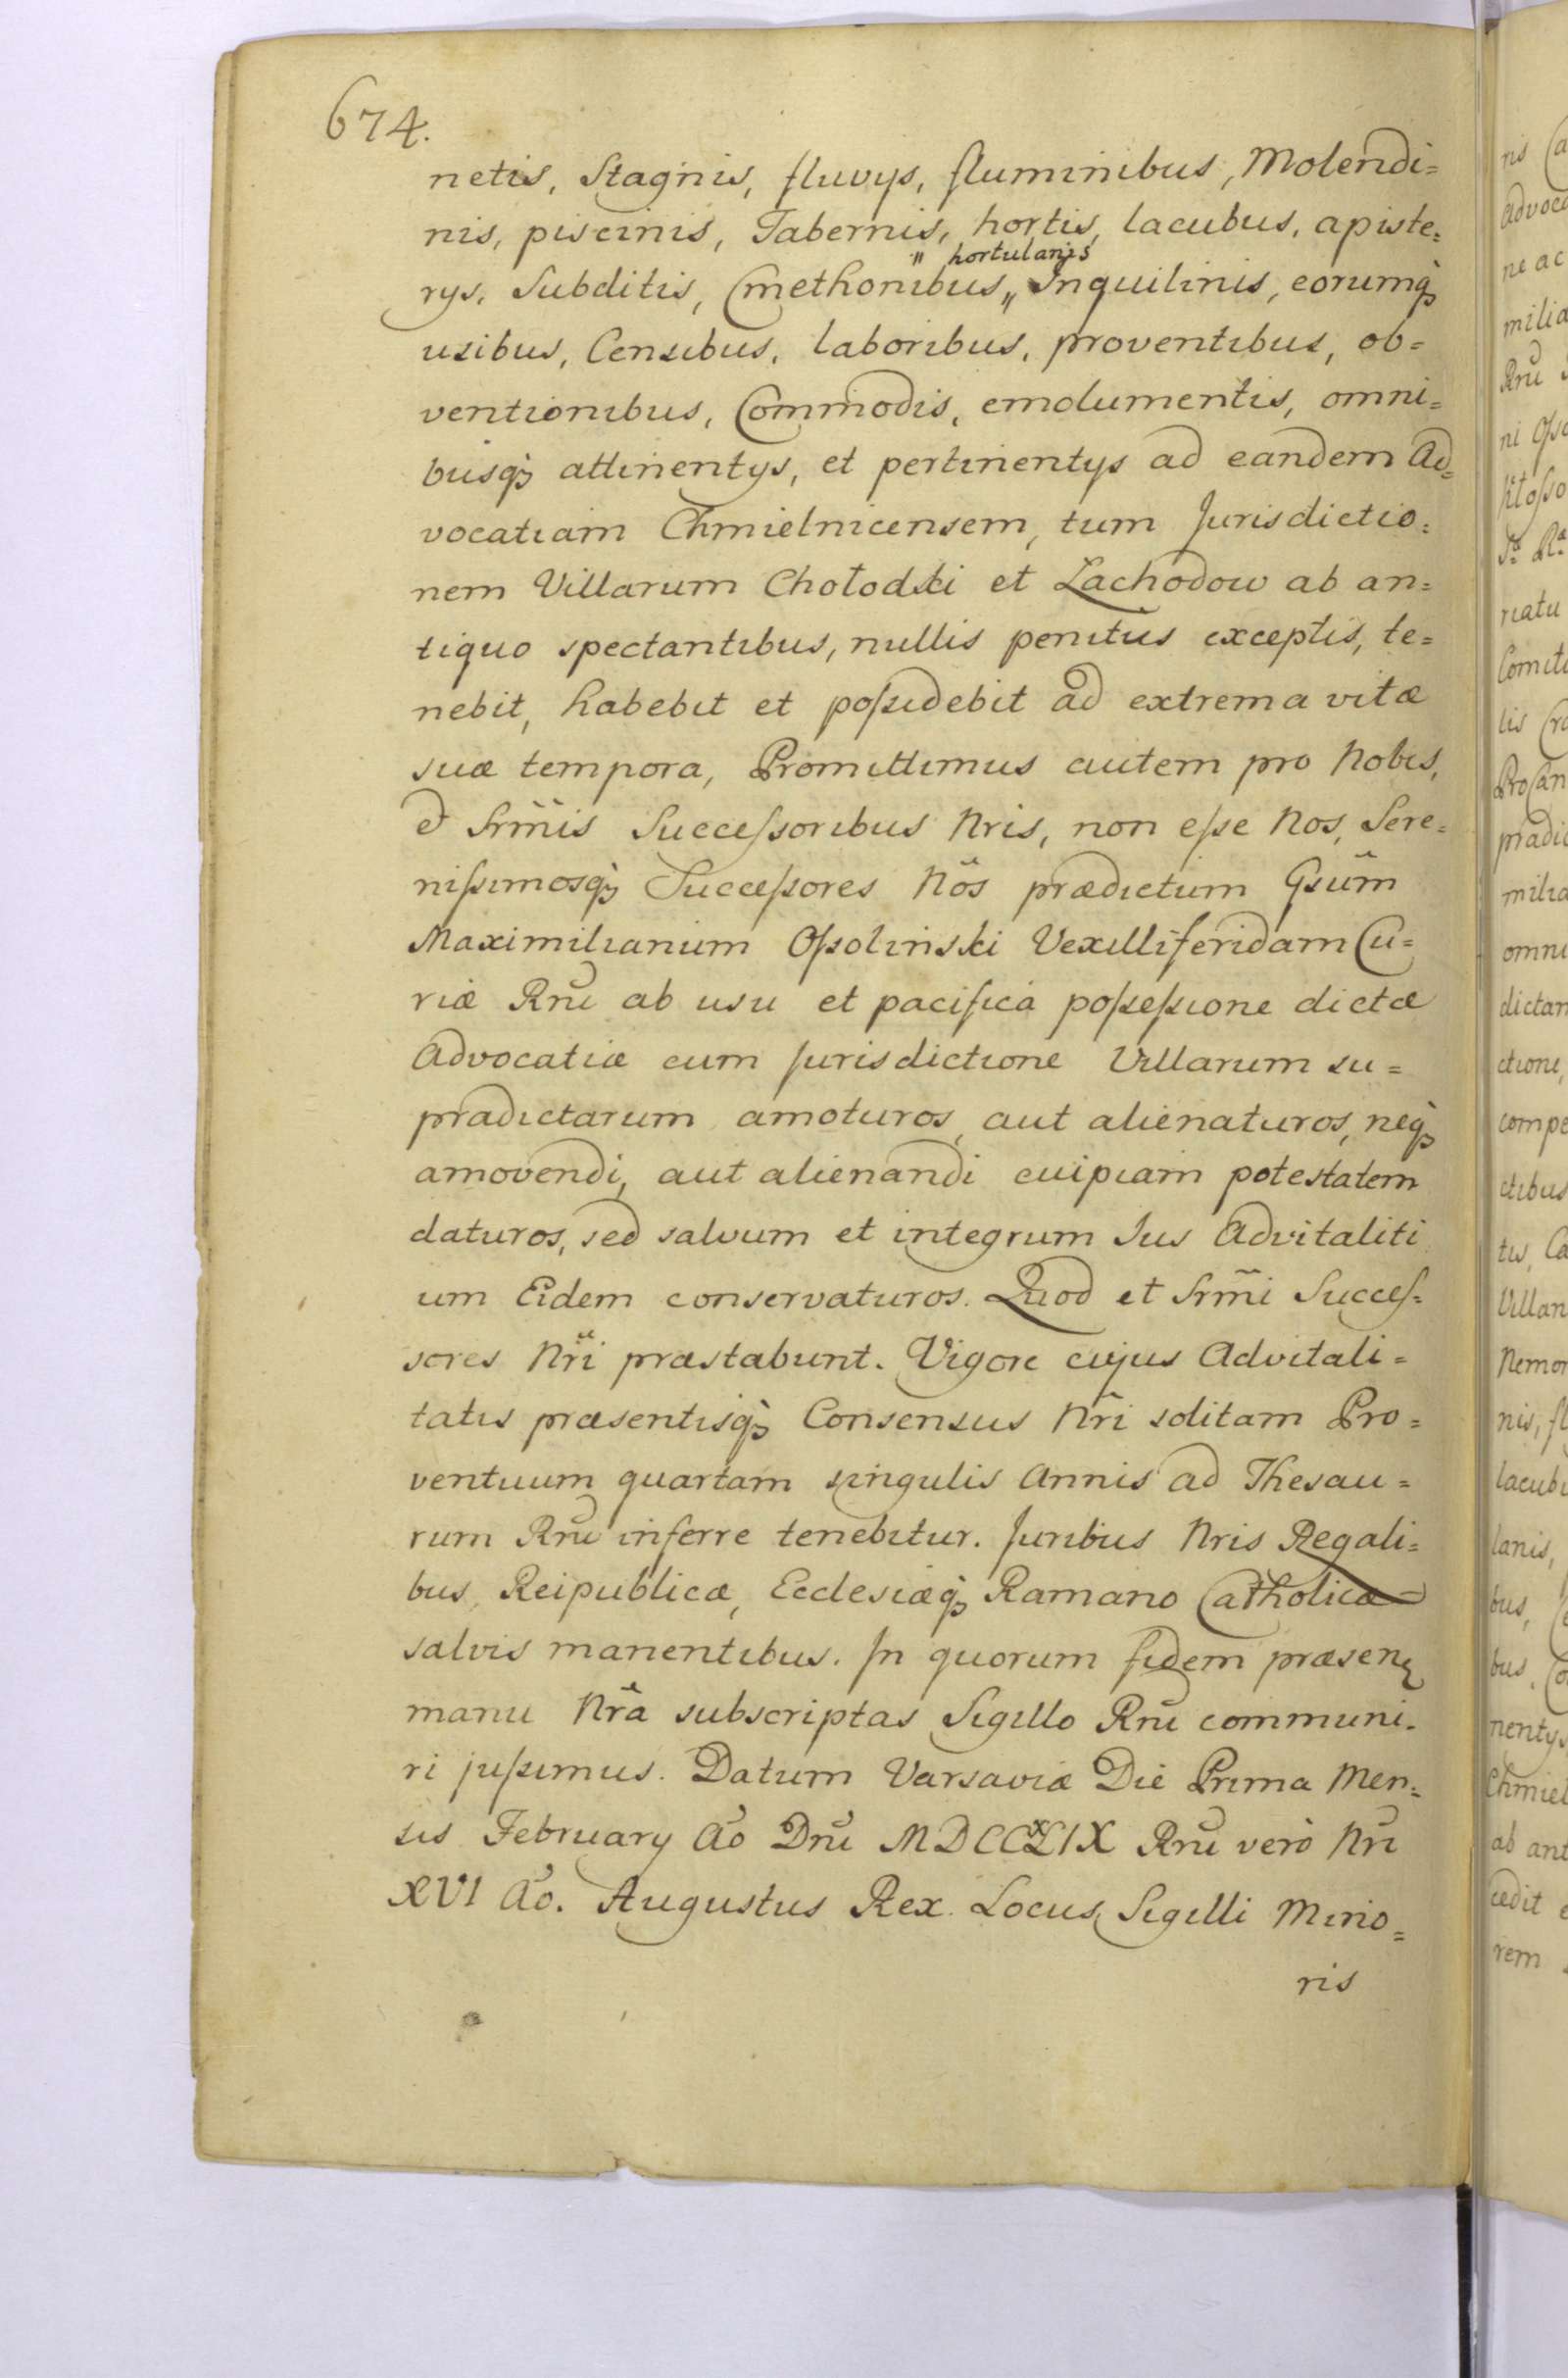 674.
netis, Stagnis, fluvys, fluminibus, Molendi=
nis, piscinis, Tabernis, hortis, lacubus, apiste=
„ hortulanis
rys, Subditis, Cmethonibus „ Inquilinis, eorumq̀₃
usibus, Censibus, laboribus, proventibus, ob=
ventionibus, Commodis, emolumentis, omni=
busq̀₃ attinentys, et pertinentys ad eandem Ad=
vocatiam Chmielnicensem, tum Jurisdictio=
nem Villarum Chołodki et Łachodow ab an=
tiquo spectantibus, nullis penitùs exceptis, te=
nebit, habebit et poſsidebit ad extrema vitæ
suæ tempora, Promittimus autem pro Nobis,
et Srm̃is Succeſsoribus Nris, non eſse Nos, Sere=
niſsimosq̀₃ Succeſsores Nõs prædictum Gsũm
Maximilianum Oſsolinski Vexilliferidam Cu=
riæ Rnĩ ab usu et pacificâ poſseſsione dictæ
Advocatiæ cum Jurisdictione Villarum su=
pradictarum amoturos, aut alienaturos, neq̀₃
amovendi, aut alienandi cuipiam potestatem
daturos, sed salvum et integrum Jus Advitaliti
um Eidem conservaturos. Quod et Srm̃i Succeſ=
sores Nr̃i præstabunt. Vigore cujus Advitali=
tatis præsentisq̀₃ Consensus Nr̃i solitam Pro=
ventuum quartam singulis Annis ad Thesau=
rum Rnĩ inferre tenebitur. Juribus Nris Regali=
bus, Reipublicæ, Ecclesiæq̀₃ Ramano Catholicæ
salvis manentibus. In quorum fidem præsen̨
manu Nr̃a subscriptas Sigillo Rnĩ communi=
ri juſsimus. Datum Varsaviæ Die Prima Men=
sis February Aõ Dnĩ MDCCXLIX Rnĩ verò Nr̃i
XVI Aõ. Augustus Rex. Locus Sigilli Mino=
ris